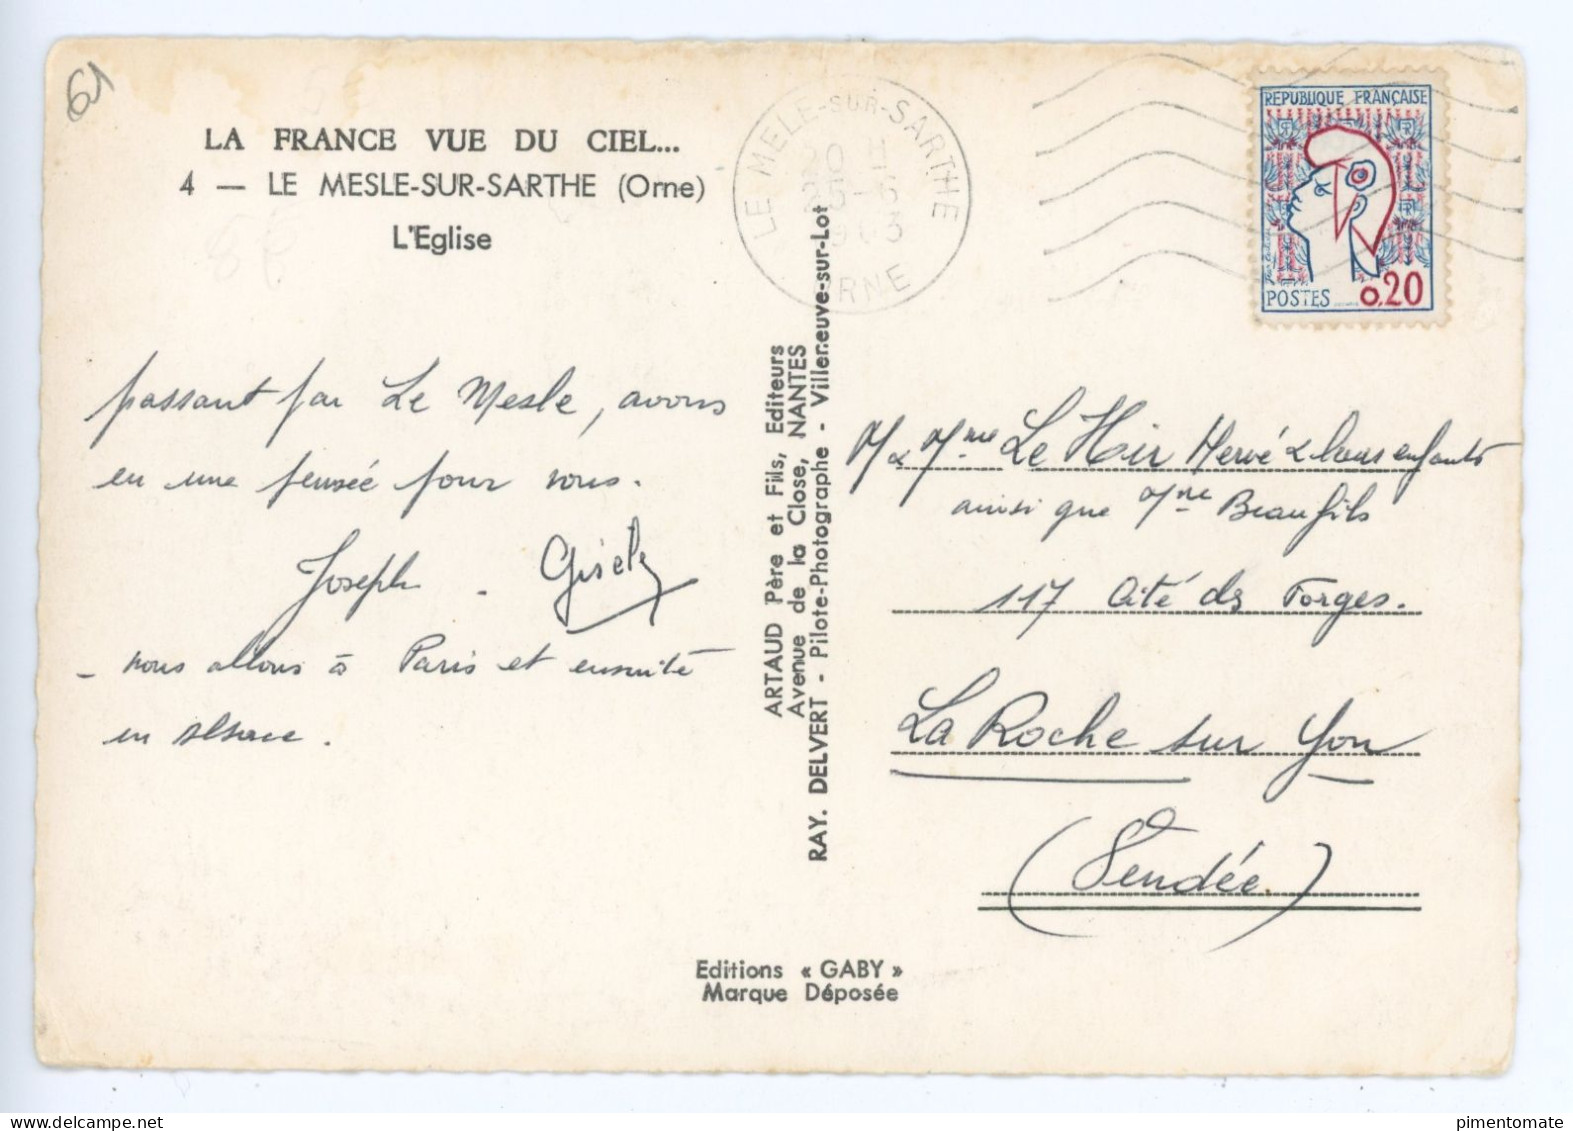 61
LA FRANCE VUE DU CIEL...
4 — LE MESLE-SUR-SARTHE (Orne)
L'Eglise
LE MELE-SUR-SARTHE
25-6
ORNE
REPUBLIQUE FRANÇAISE
POSTES 0,20
passant par Le Mesle, avons
eu une pensée pour vous.
Joseph - Gisèle
- nous allons à Paris et ensuite
en Alsace.
ARTAUD Père et Fils, Editeurs
Avenue de la Close, NANTES
RAY. DELVERT - Pilote-Photographe - Villeneuve-sur-Lot
M & Mme Le Hir Hervé & leurs enfants
ainsi que Mme Beaufils
117 Cité des Forges.
La Roche sur Yon
(Vendée)
Editions « GABY »
Marque Déposée
pimentomate